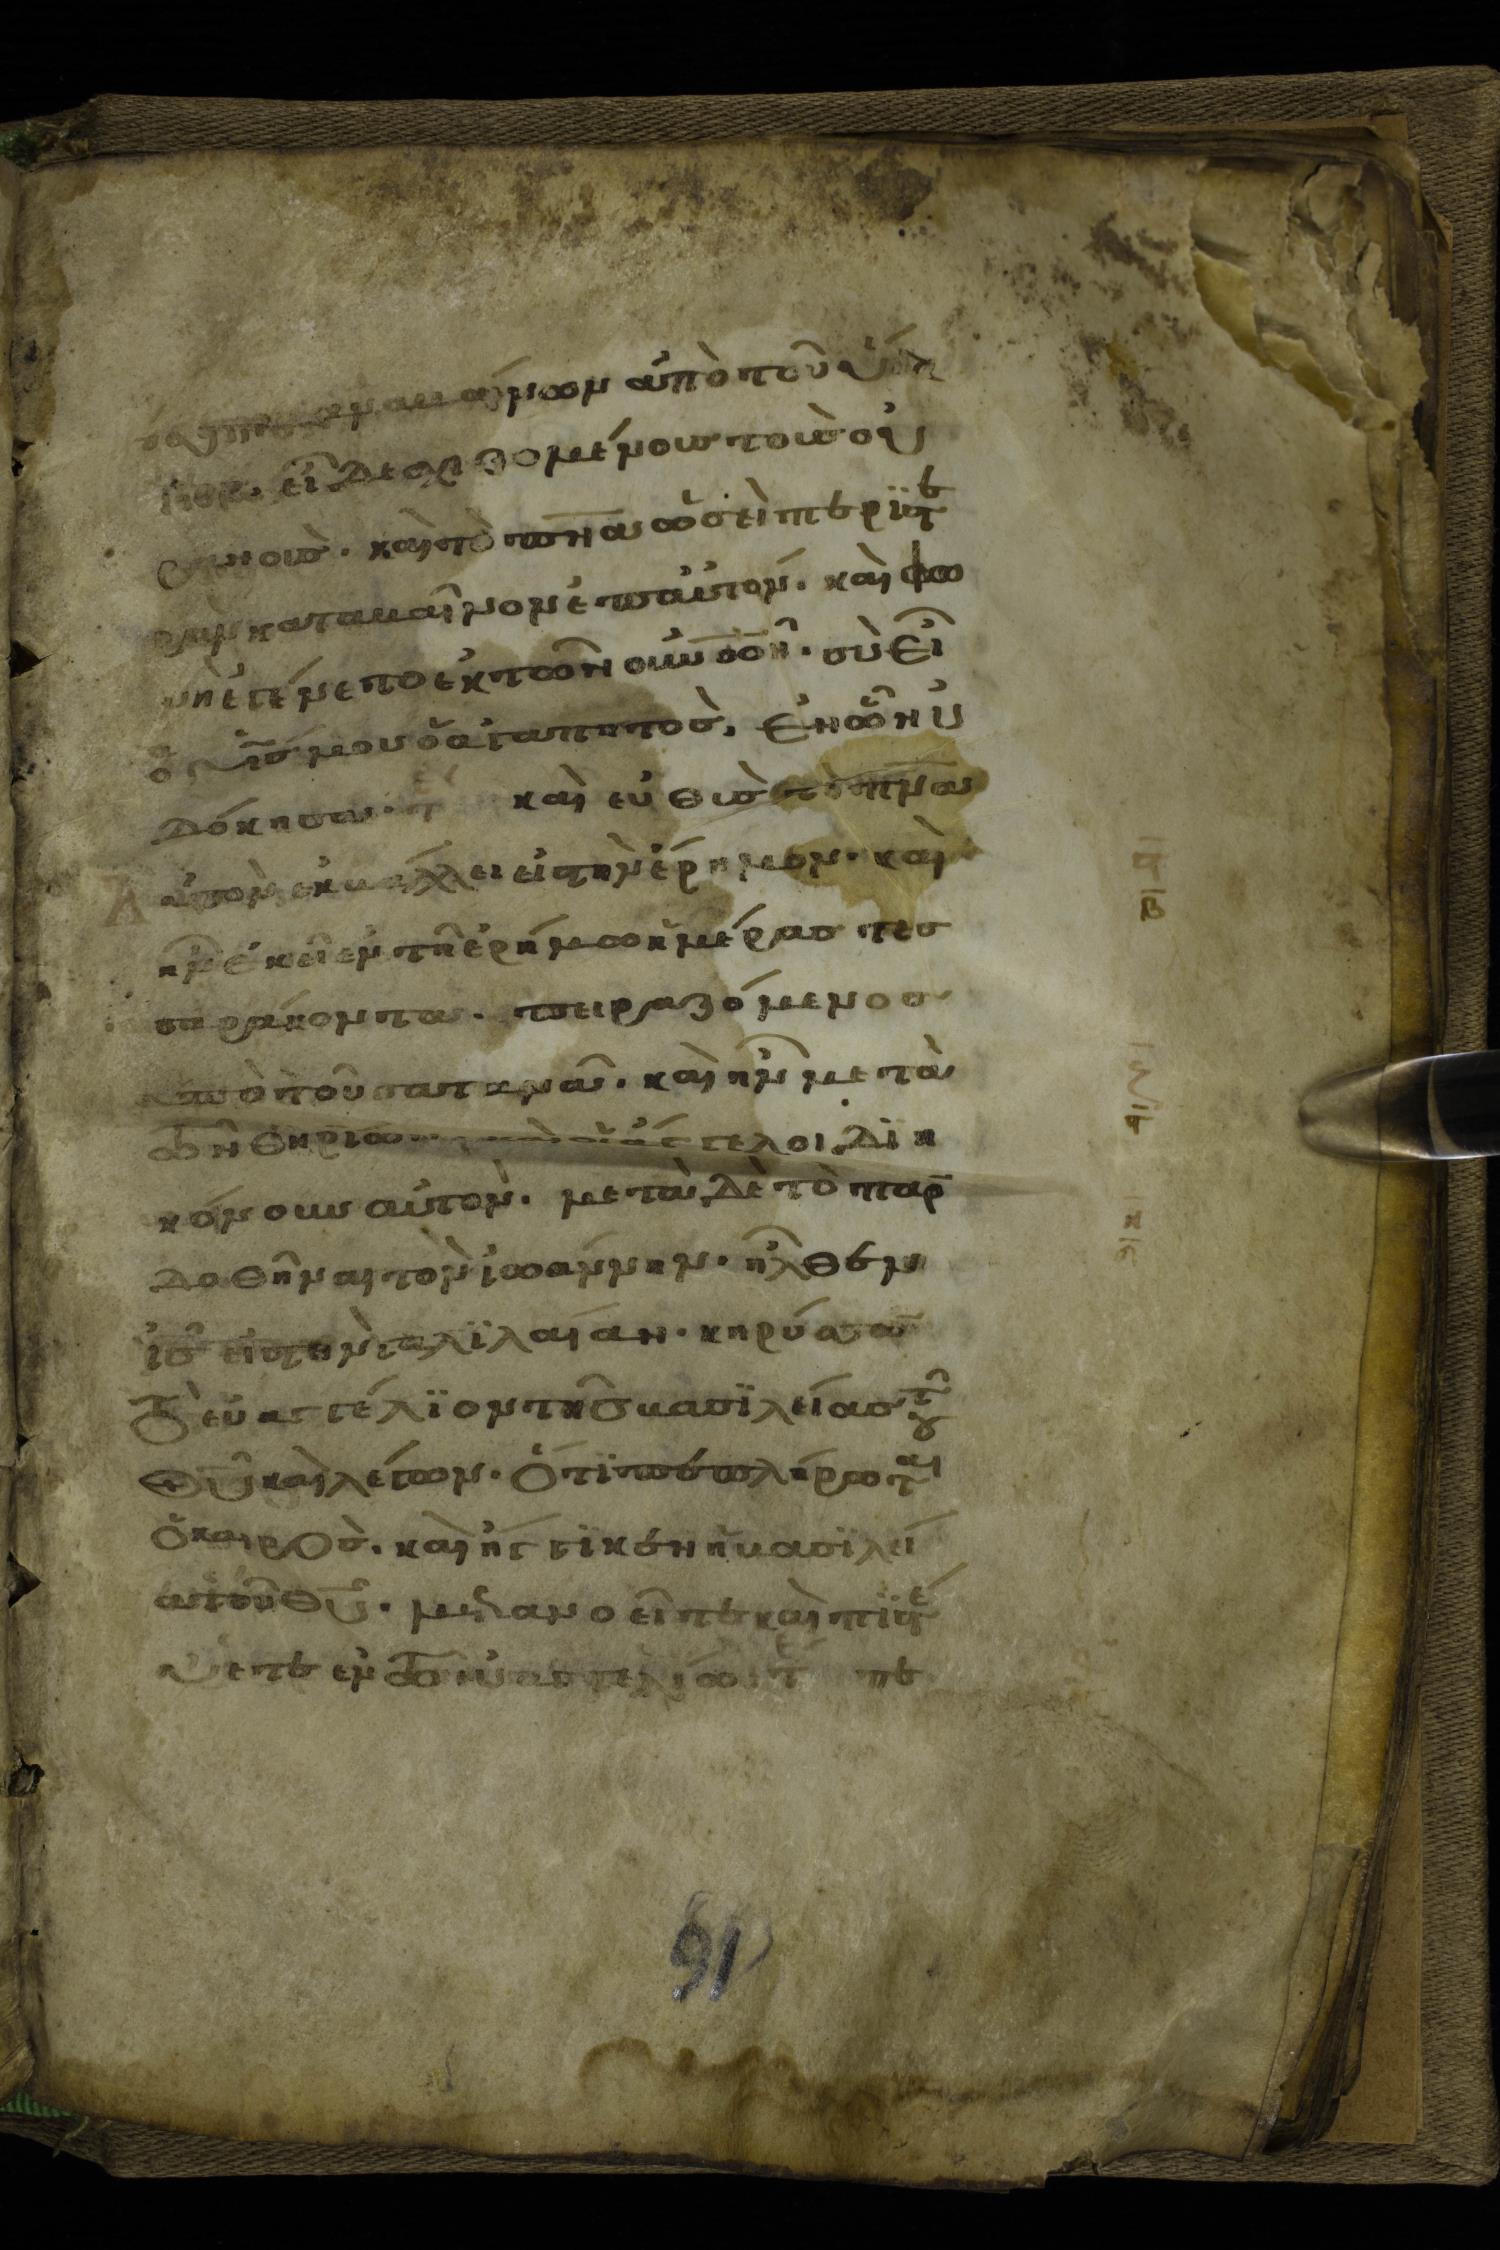 ἀναβαίνων ἀπὸ τοῦ ὕδα
εἶδε σχιζομένους τοὺς οὐ
ρανοὺς. καὶ τὸ πνα ὡσεὶ περιστε
ρὰν καταβαῖνον ἐπ αὐτόν. καὶ φω
νὴ ἐγένετο ἐκ τῶν οὐνῶν. σὺ εἶ
ὁ υἱσ μου ὁ ἀγαπητὸσ, ἐν ὧ ηὐ
δόκησα. καὶ εὐθὺσ τὸ πνα
αὐτὸν ἐκβάλλει εἰσ τὴν ἔρημον. καὶ
ἦν ἐκεῖ ἐν τῆ ἐρήμω ἡμέρασ τεσ
σαράκοντα. πειραζόμενοσ
ὑπὸ τοῦ σατανᾶ. καὶ ἦν μετὰ
τῶν θηρίων, καὶ οἱ ἄγγελοι διη
κόνουν αὐτὸν. μετὰ δὲ τὸ παρα
δοθῆναι τὸν ἰωάννην. ἦλθεν
ὁ ισ εἰσ τὴν γαλϊλαίαν. κηρύσσων
τὸ εὐαγγέλϊον τῆσ βασϊλείασ τοῦ
θυ καὶ λέγων. ὅτϊ πεπλήρωται
ὁ καιρὸσ. καὶ ἤγγϊκεν ἡ βασϊλεί
α τοῦ θυ. μετανοεῖτε καὶ πϊστέ
υετε ἐν τῶ εὐαγγελίω τε
16